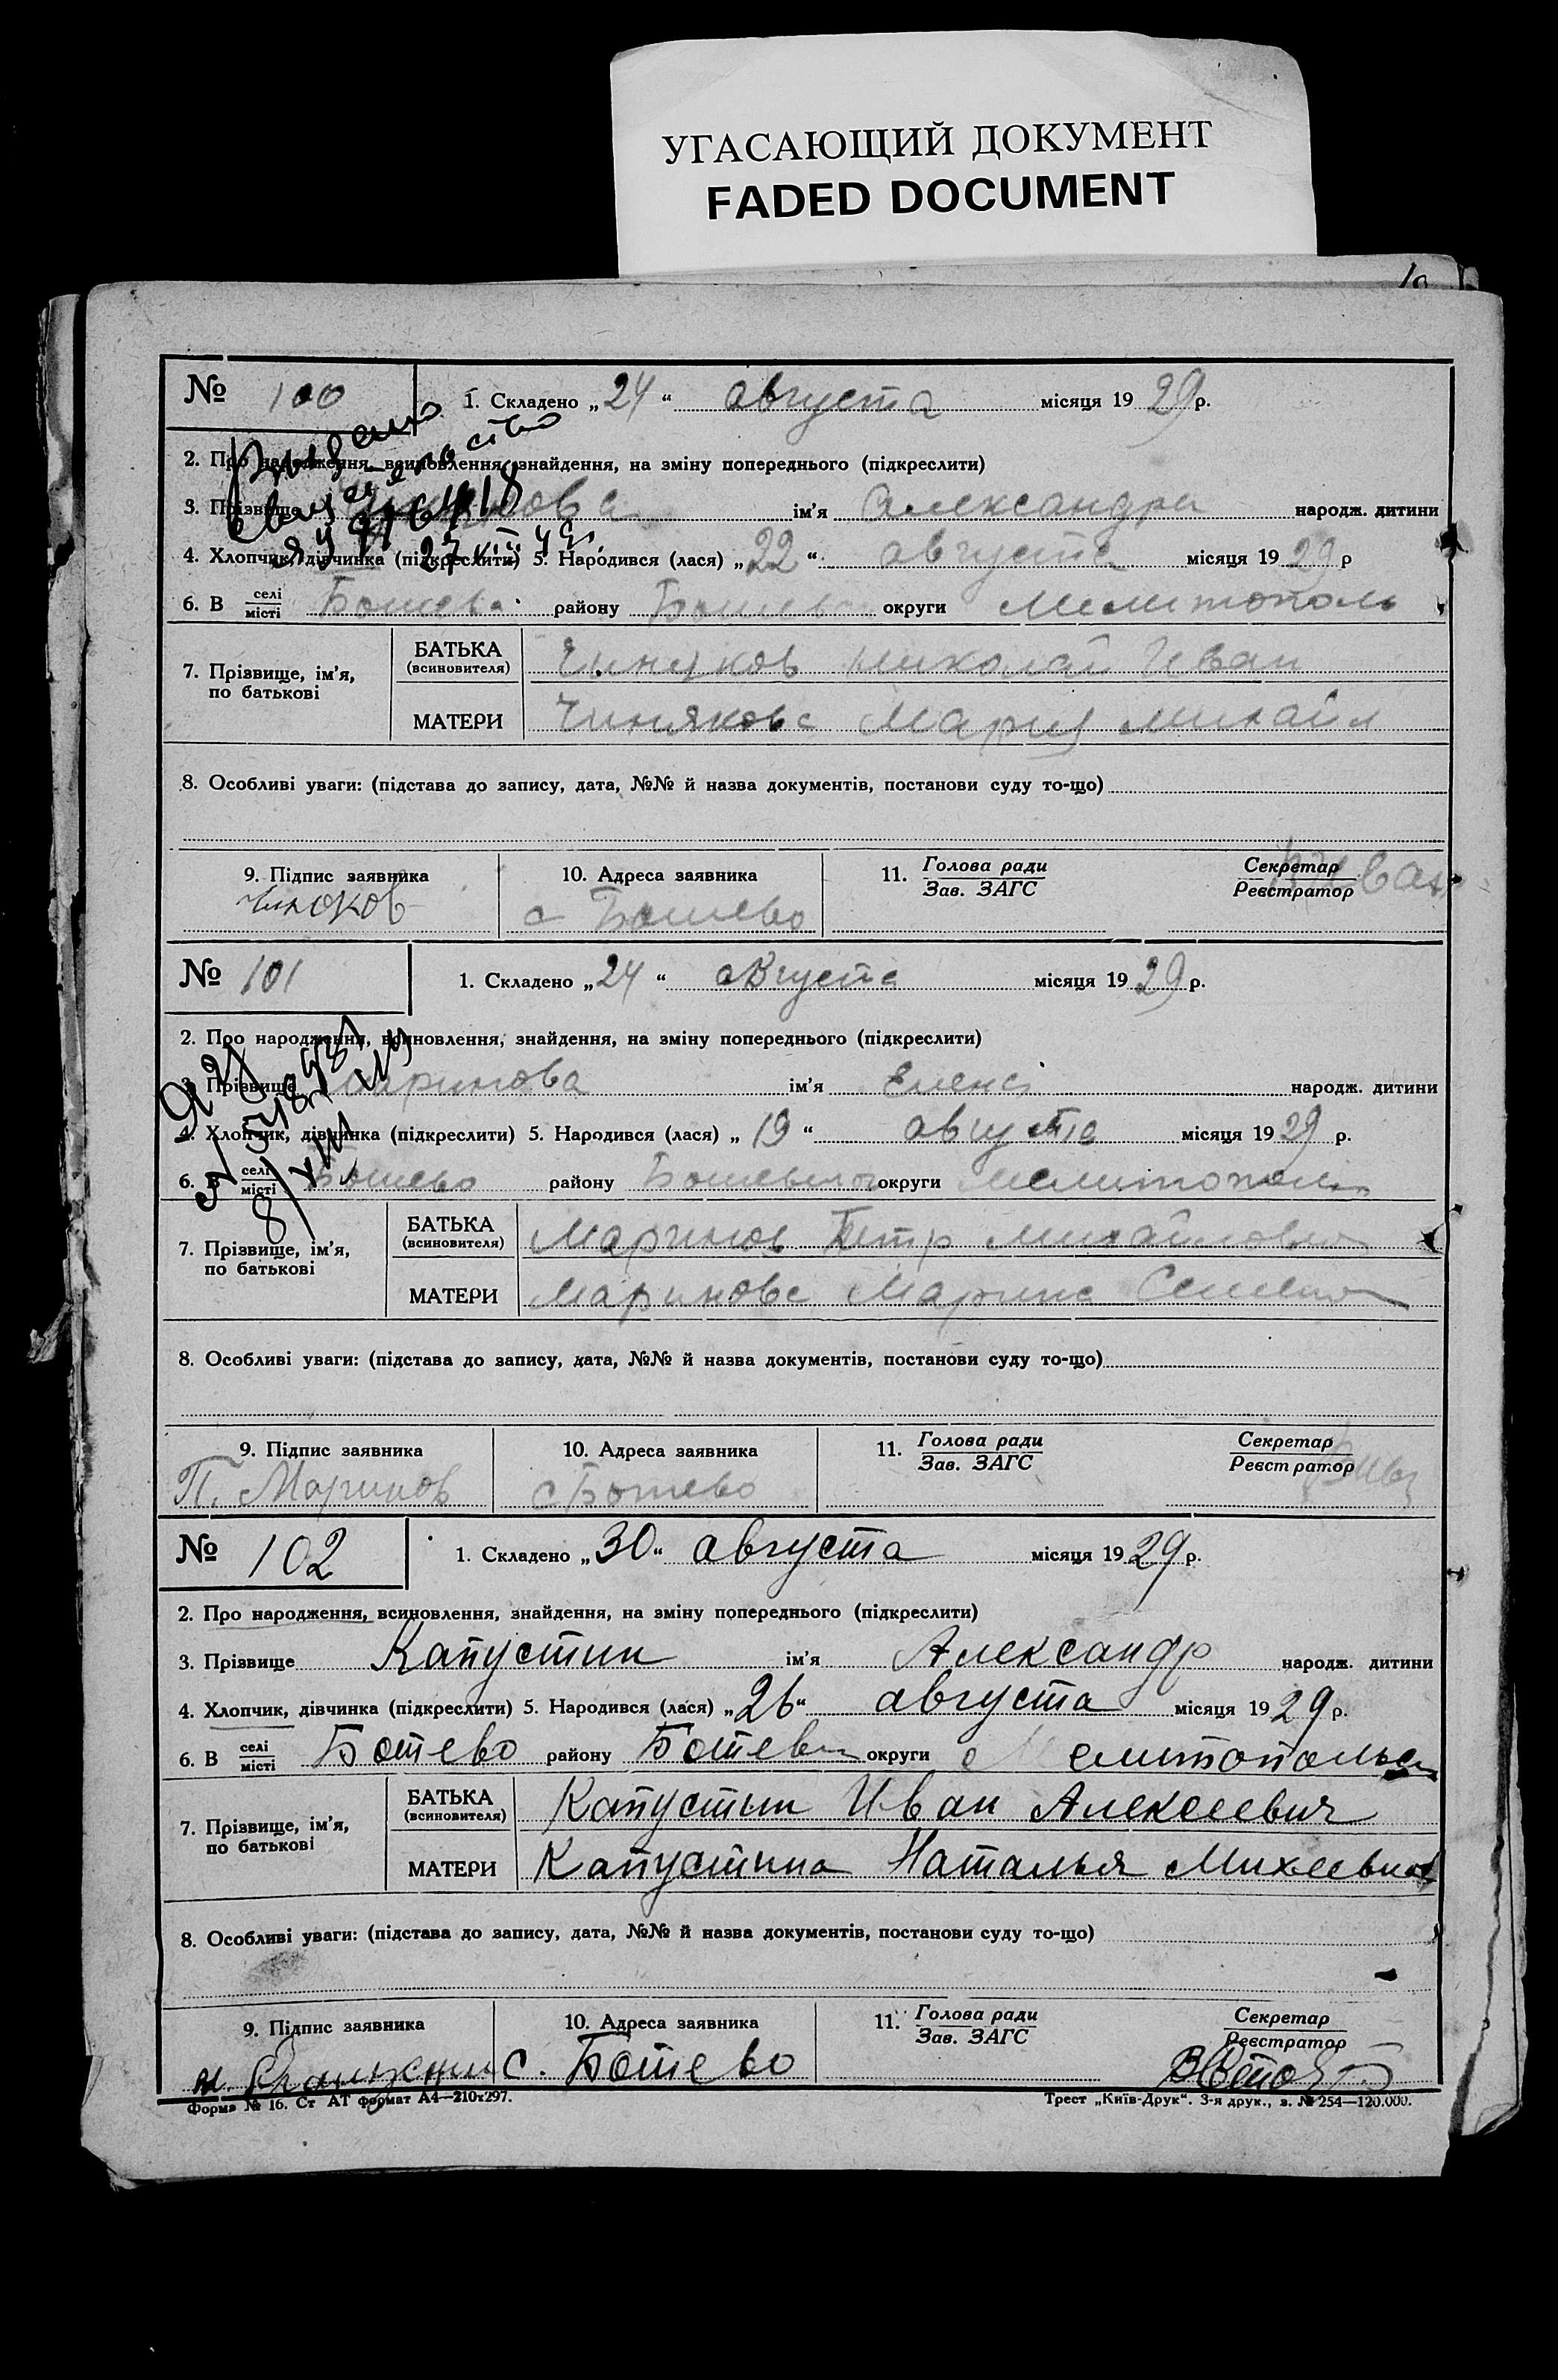 УГАСАЮЩИЙ ДОКУМЕНТ
FADED DOCUMENT
№ 100
1. Складено „24“ августа місяця 1929 р.
2. Про народження, всиновлення, знайдення, на зміну попереднього (підкреслити)
3. Прізвище ім'я Александра народж. дитини
4. Хлопчик, дівчинка (підкреслити) 5. Народився (лася) „22“ августа місяця 1929 р
6. В селі/місті Ботево району Ботев округи Мелитополь
7. Прізвище, ім'я, по батькові
БАТЬКА (всиновителя) Николай Иван
МАТЕРИ Чинякова Мария Михайл
8. Особливі уваги: (підстава до запису, дата, №№ й назва документів, постанови суду то-що)
9. Підпис заявника
10. Адреса заявника с Ботево
11. Голова ради / Зав. ЗАГС
Секретар / Реєстратор
№ 101
1. Складено „24“ августа місяця 1929 р.
2. Про народження, всиновлення, знайдення, на зміну попереднього (підкреслити)
3. Прізвище Маринова ім'я Елена народж. дитини
4. Хлопчик, дівчинка (підкреслити) 5. Народився (лася) „19“ августа місяця 1929 р.
6. В селі/місті Ботево району округи Мелитополь
7. Прізвище, ім'я, по батькові
БАТЬКА (всиновителя) Маринов Петр Михайлович
МАТЕРИ Маринова Марина Семен
8. Особливі уваги: (підстава до запису, дата, №№ й назва документів, постанови суду то-що)
9. Підпис заявника П. Маринов
10. Адреса заявника с Ботево
11. Голова ради / Зав. ЗАГС
Секретар / Реєстратор
№ 102
1. Складено „30“ августа місяця 1929 р.
2. Про народження, всиновлення, знайдення, на зміну попереднього (підкреслити)
3. Прізвище Капустин ім'я Александр народж. дитини
4. Хлопчик, дівчинка (підкреслити) 5. Народився (лася) „26“ августа місяця 1929 р.
6. В селі/місті Ботево району Ботев округи Мелитопольс
7. Прізвище, ім'я, по батькові
БАТЬКА (всиновителя) Капустин Иван Алексеевич
МАТЕРИ Капустина Наталья Михеевна
8. Особливі уваги: (підстава до запису, дата, №№ й назва документів, постанови суду то-що)
9. Підпис заявника
10. Адреса заявника с. Ботево
11. Голова ради / Зав. ЗАГС
Секретар / Реєстратор
Форма № 16. Ст АТ формат А4—210х297.
Трест „Київ-Друк“. 3-я друк., з. № 254—120.000.